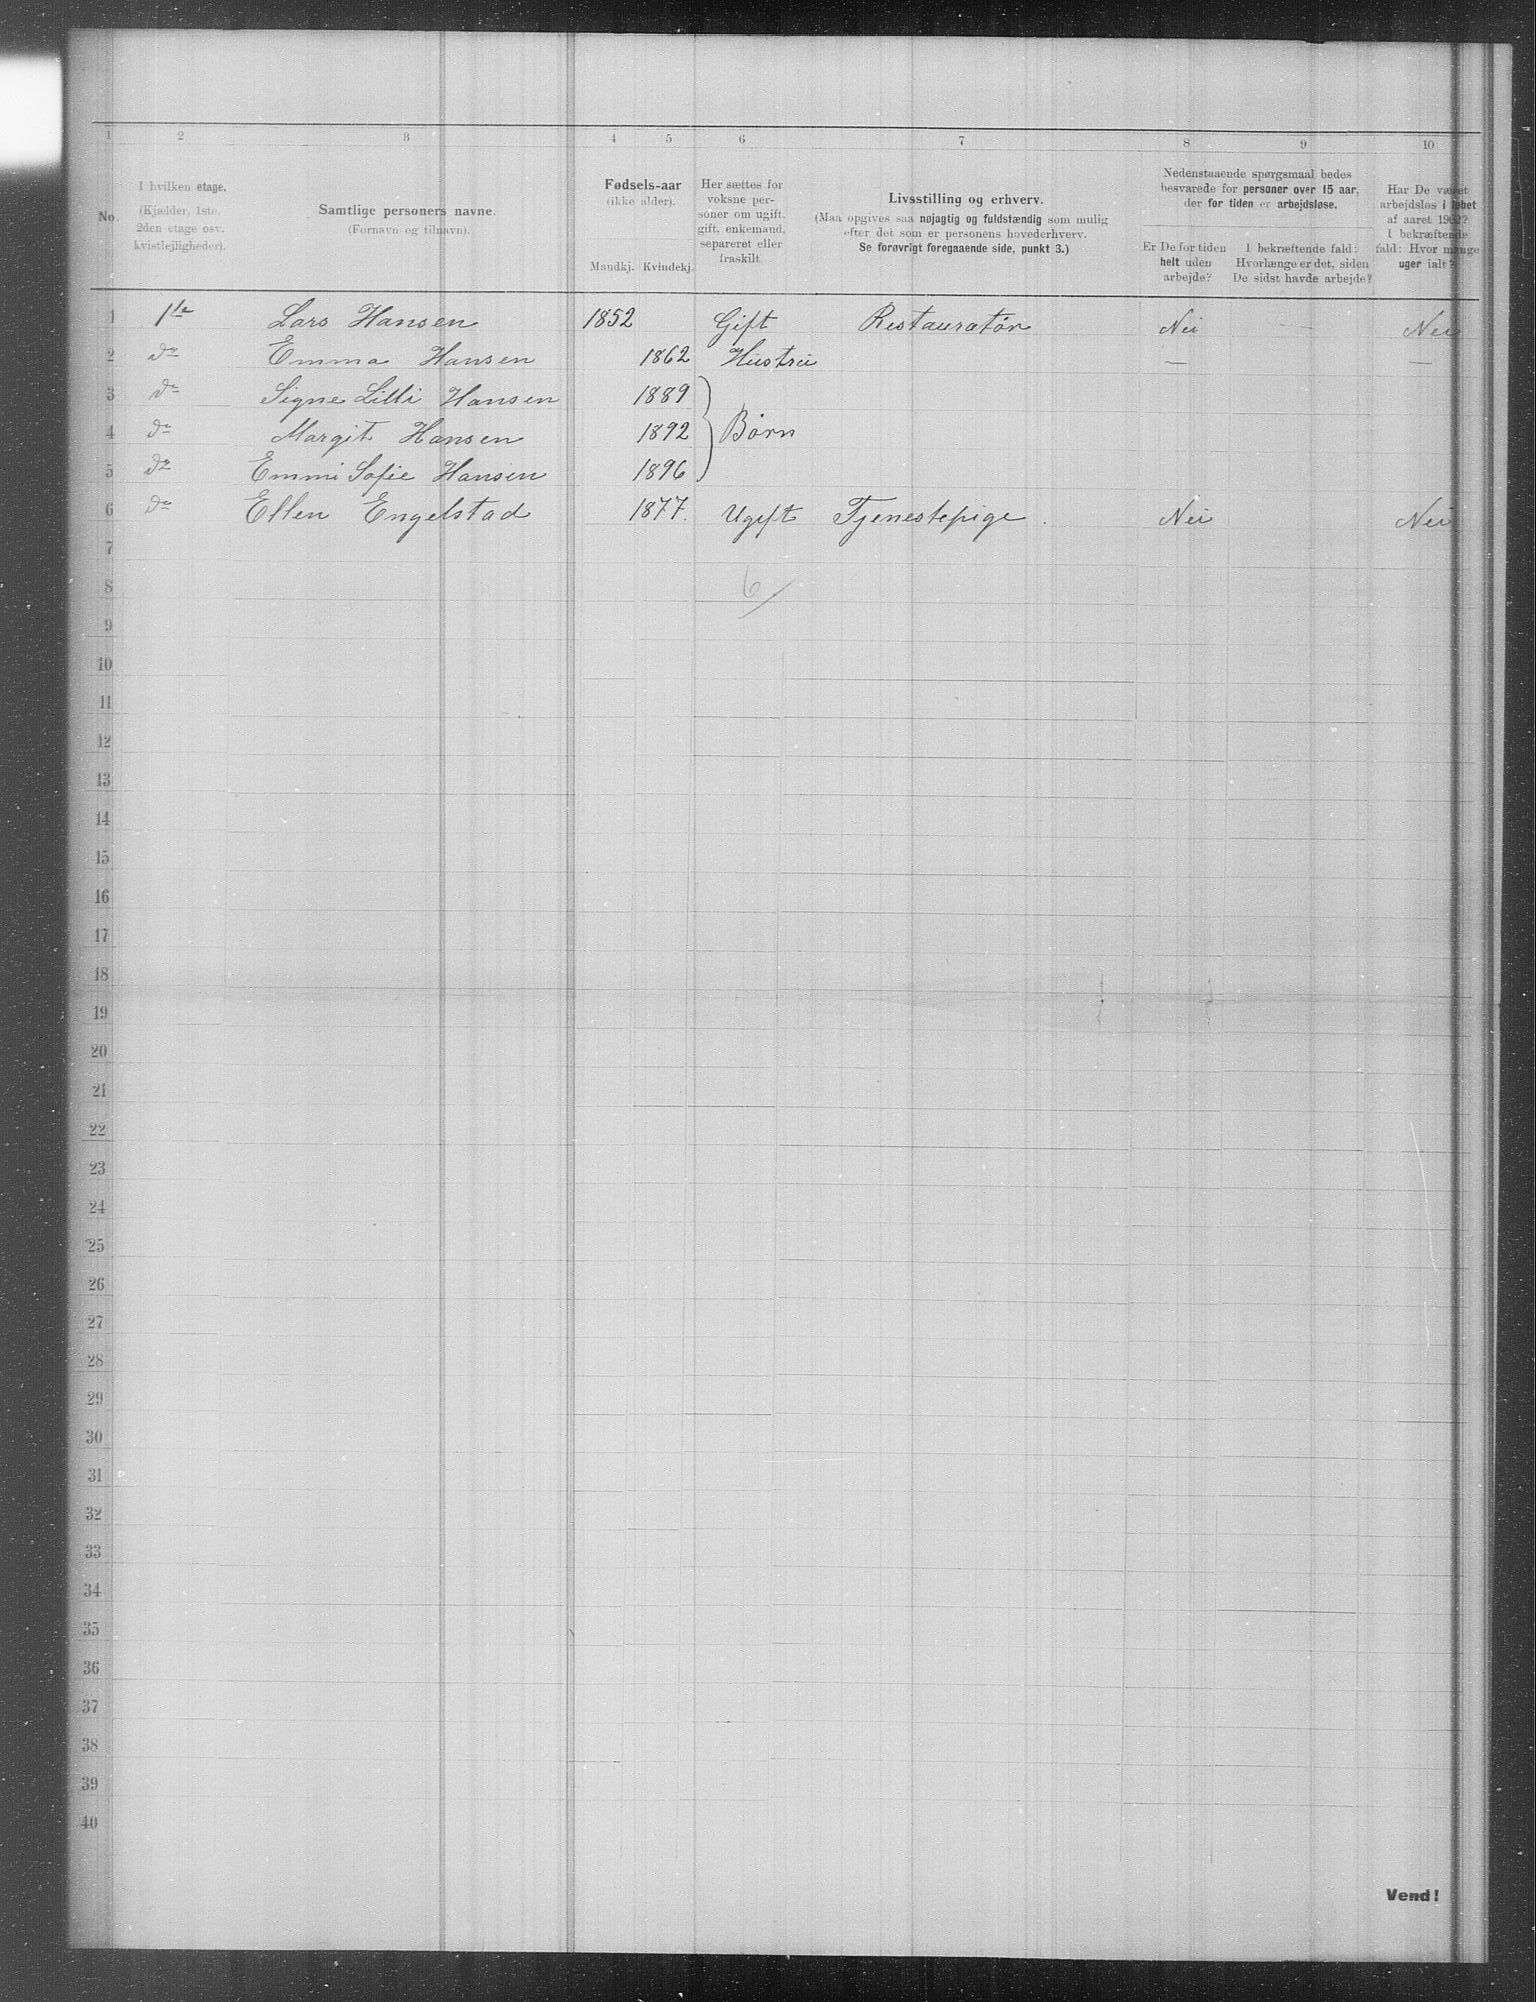 1 2 3 4 5 6 7 8 9 10
No.
I hvilken etage.
(Kjælder, 1ste,
2den etage osv.
kvistlejligheder).
Samtlige personers navne.
(Fornavn og tilnavn).
Fødsels-aar
(ikke alder).
Mandkj. Kvindekj.
Her sættes for
voksne per-
soner om ugift,
gift, enkemand,
separeret eller
fraskilt.
Livsstilling og erhverv.
(Maa opgives saa nøjagtig og fuldstændig som mulig
efter det som er personens hovederhverv.
Se forøvrigt foregaaende side, punkt 3.)
Nedenstaaende spørgsmaal bedes
besvarede for personer over 15 aar,
der for tiden er arbejdsløse.
Er De for tiden
helt uden
arbejde?
I bekræftende fald:
Hvorlænge er det, siden
De sidst havde arbejde?
Har De været
arbejdsløs i løbet
af aaret 1902?
I bekræftende
fald: Hvor mange
uger ialt?
1 1ste Lars Hansen 1852 Gift Restauratør Nei — Nei
2 do Emma Hansen 1862 Hustru — —
3 do Signe Lilli Hansen 1889
4 do Margit Hansen 1892 Børn
5 do Emmi Sofie Hansen 1896
6 do Ellen Engelstad 1877. Ugift Tjenestepige. Nei Nei
7
8 6/
9
10
11
12
13
14
15
16
17
18
19
20
21
22
23
24
25
26
27
28
29
30
31
32
33
34
35
36
37
38
39
40
Vend!